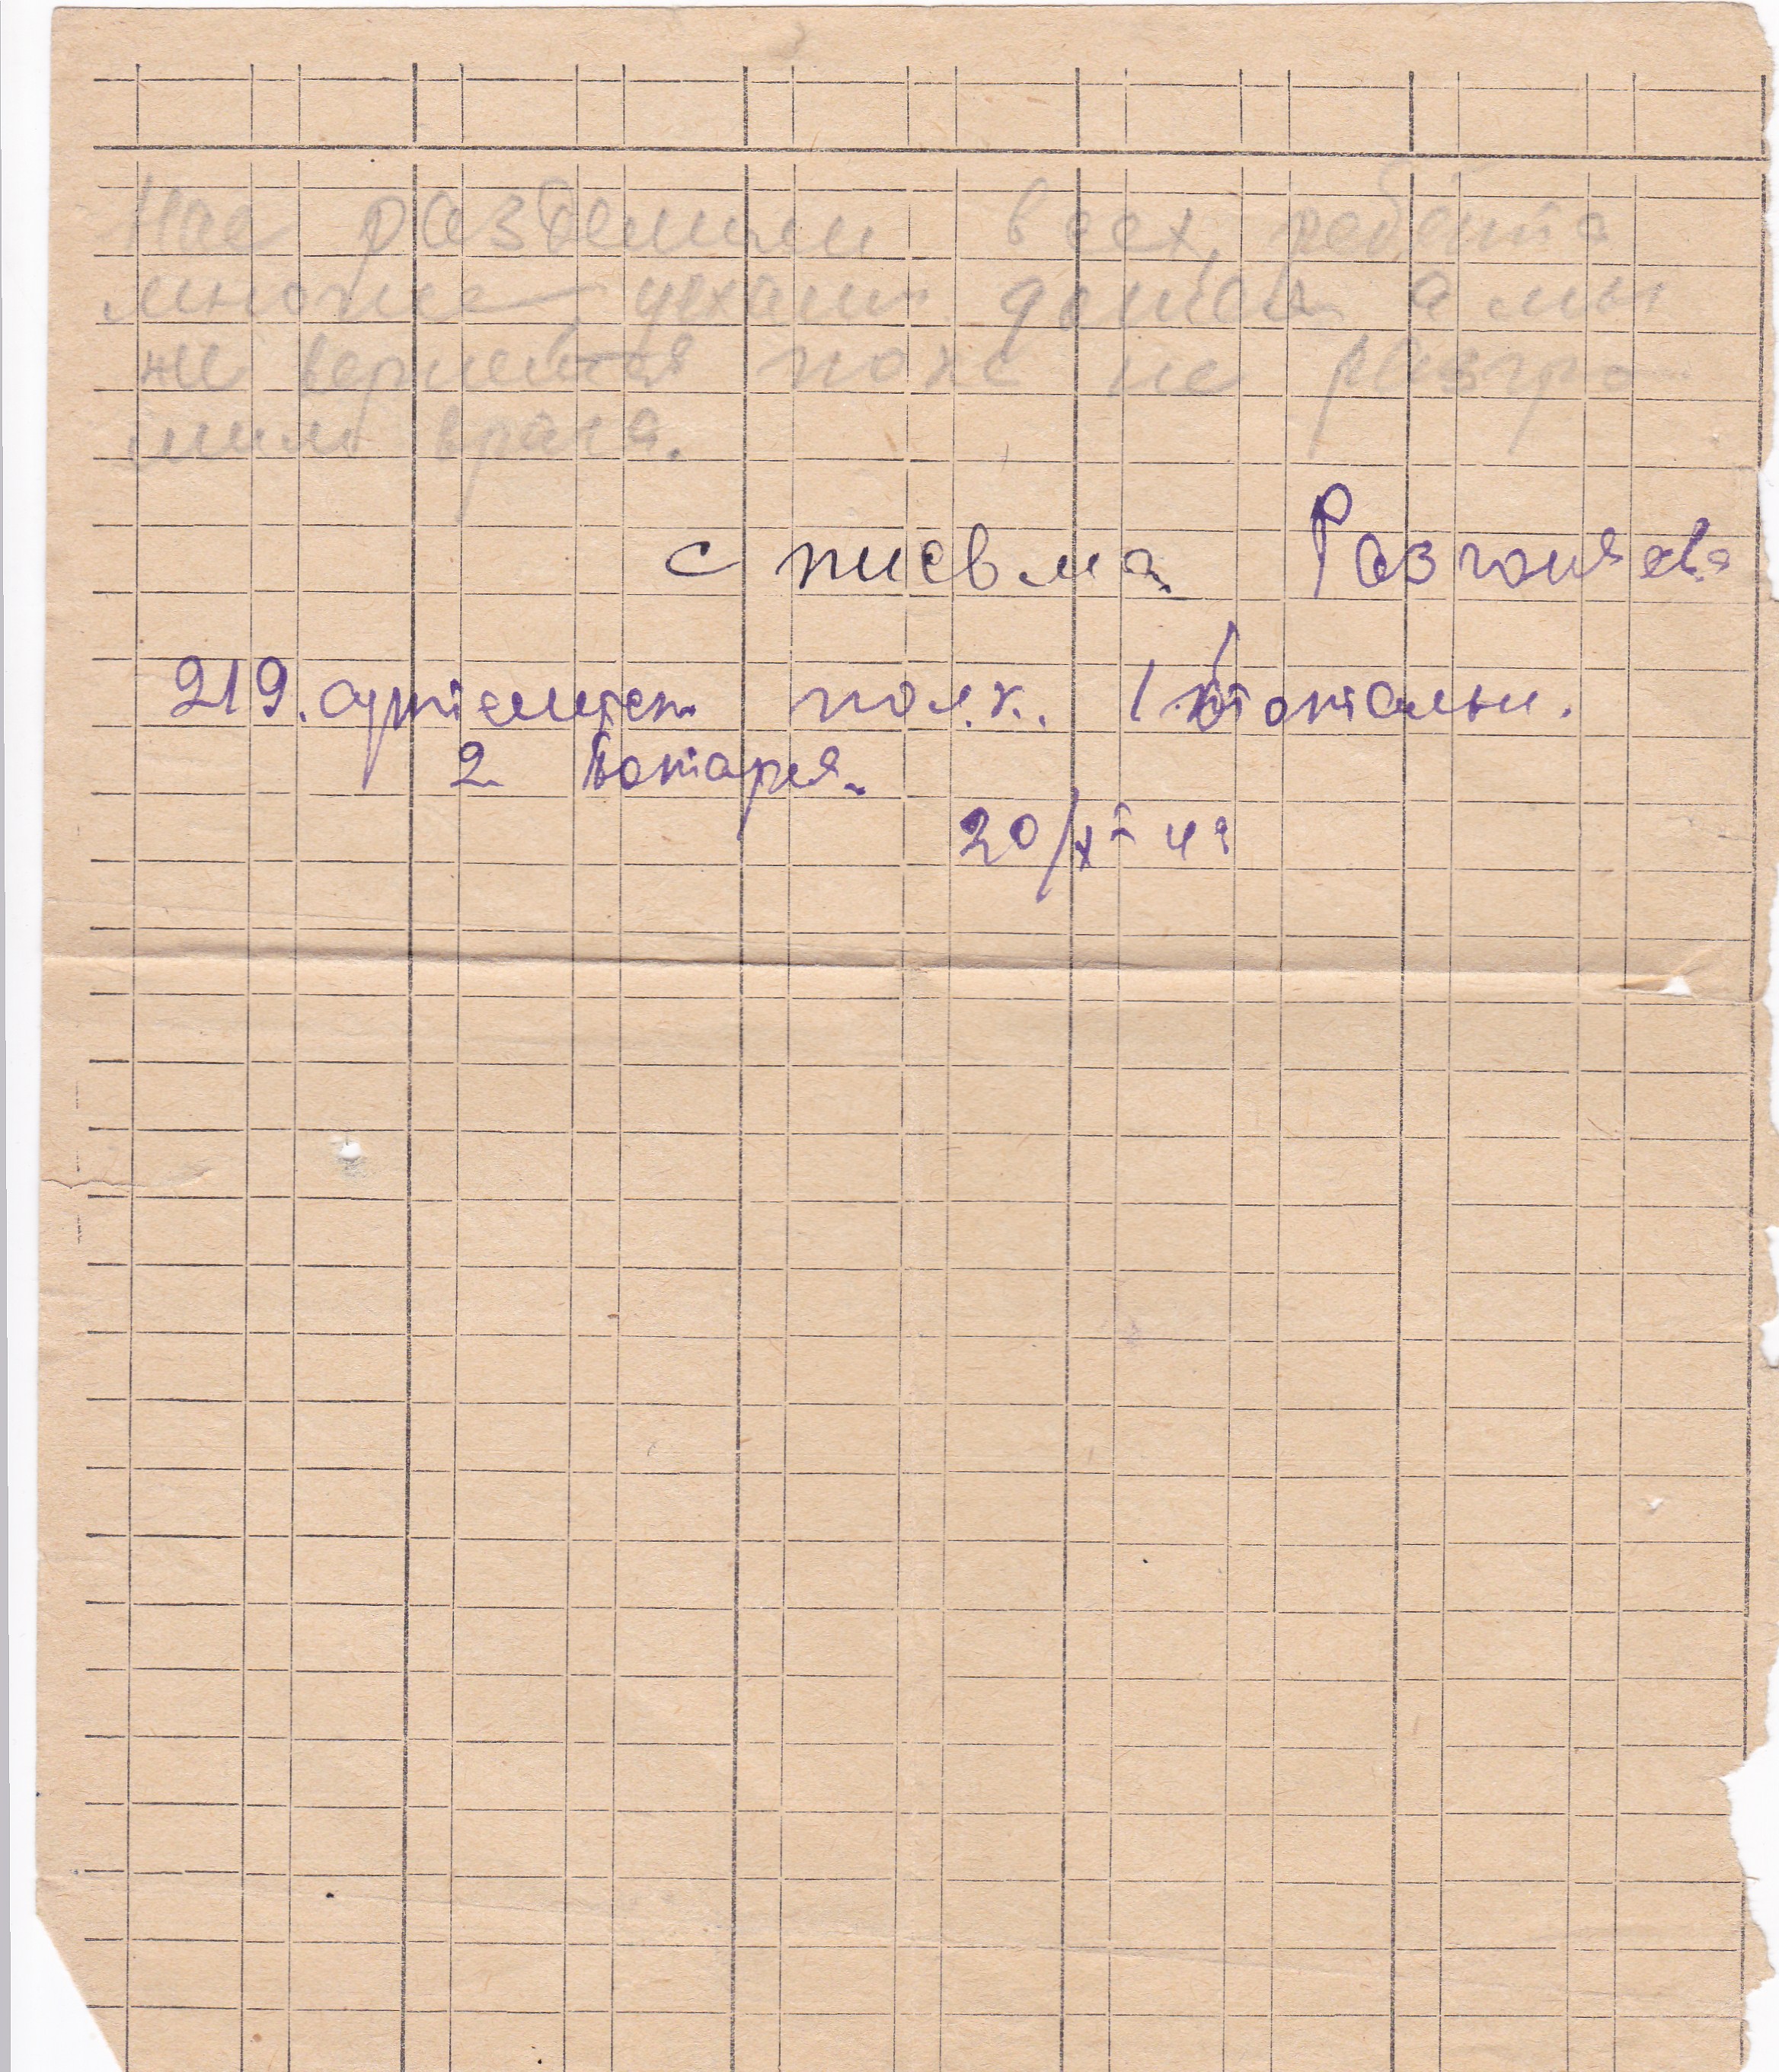 Нас разделили всех, ребята
многие уехали домой а мы
не вернемся пока не разгро-
мим врага.
с письма Разгоняева
219. артилерск полк. 1 батальн.
2 батарея.
20/X